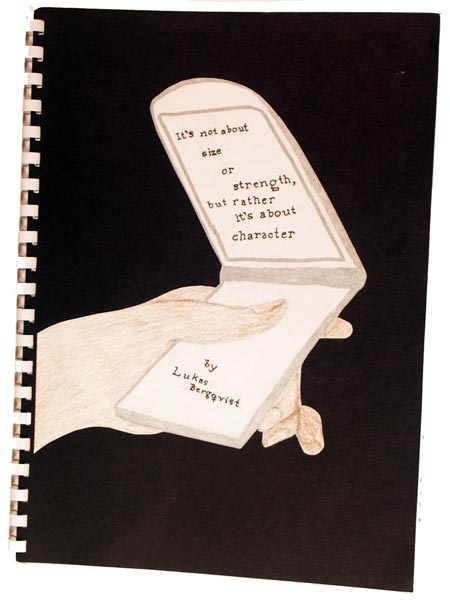 It's not about
size
or
strength,
but rather
it's about
character
by
Lukas
Bergqvist